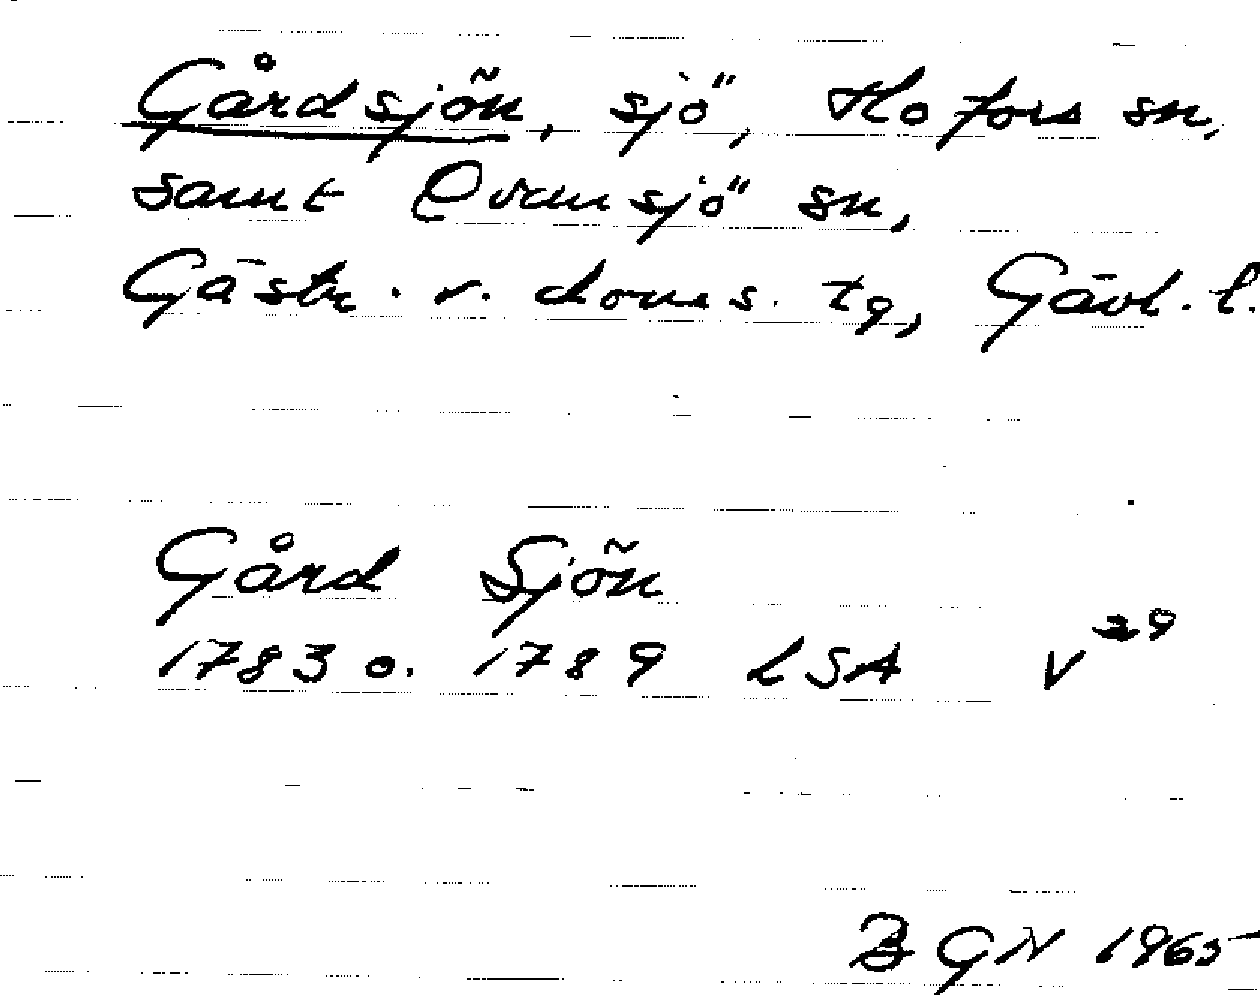 Gårdsjön, sjö, Hofors sn,
samt Ovansjö sn,
Gästr. v. doms. tg, Gävl. l.
Gård Sjön
1783 o. 1789 LSA V 29
BGN 1965